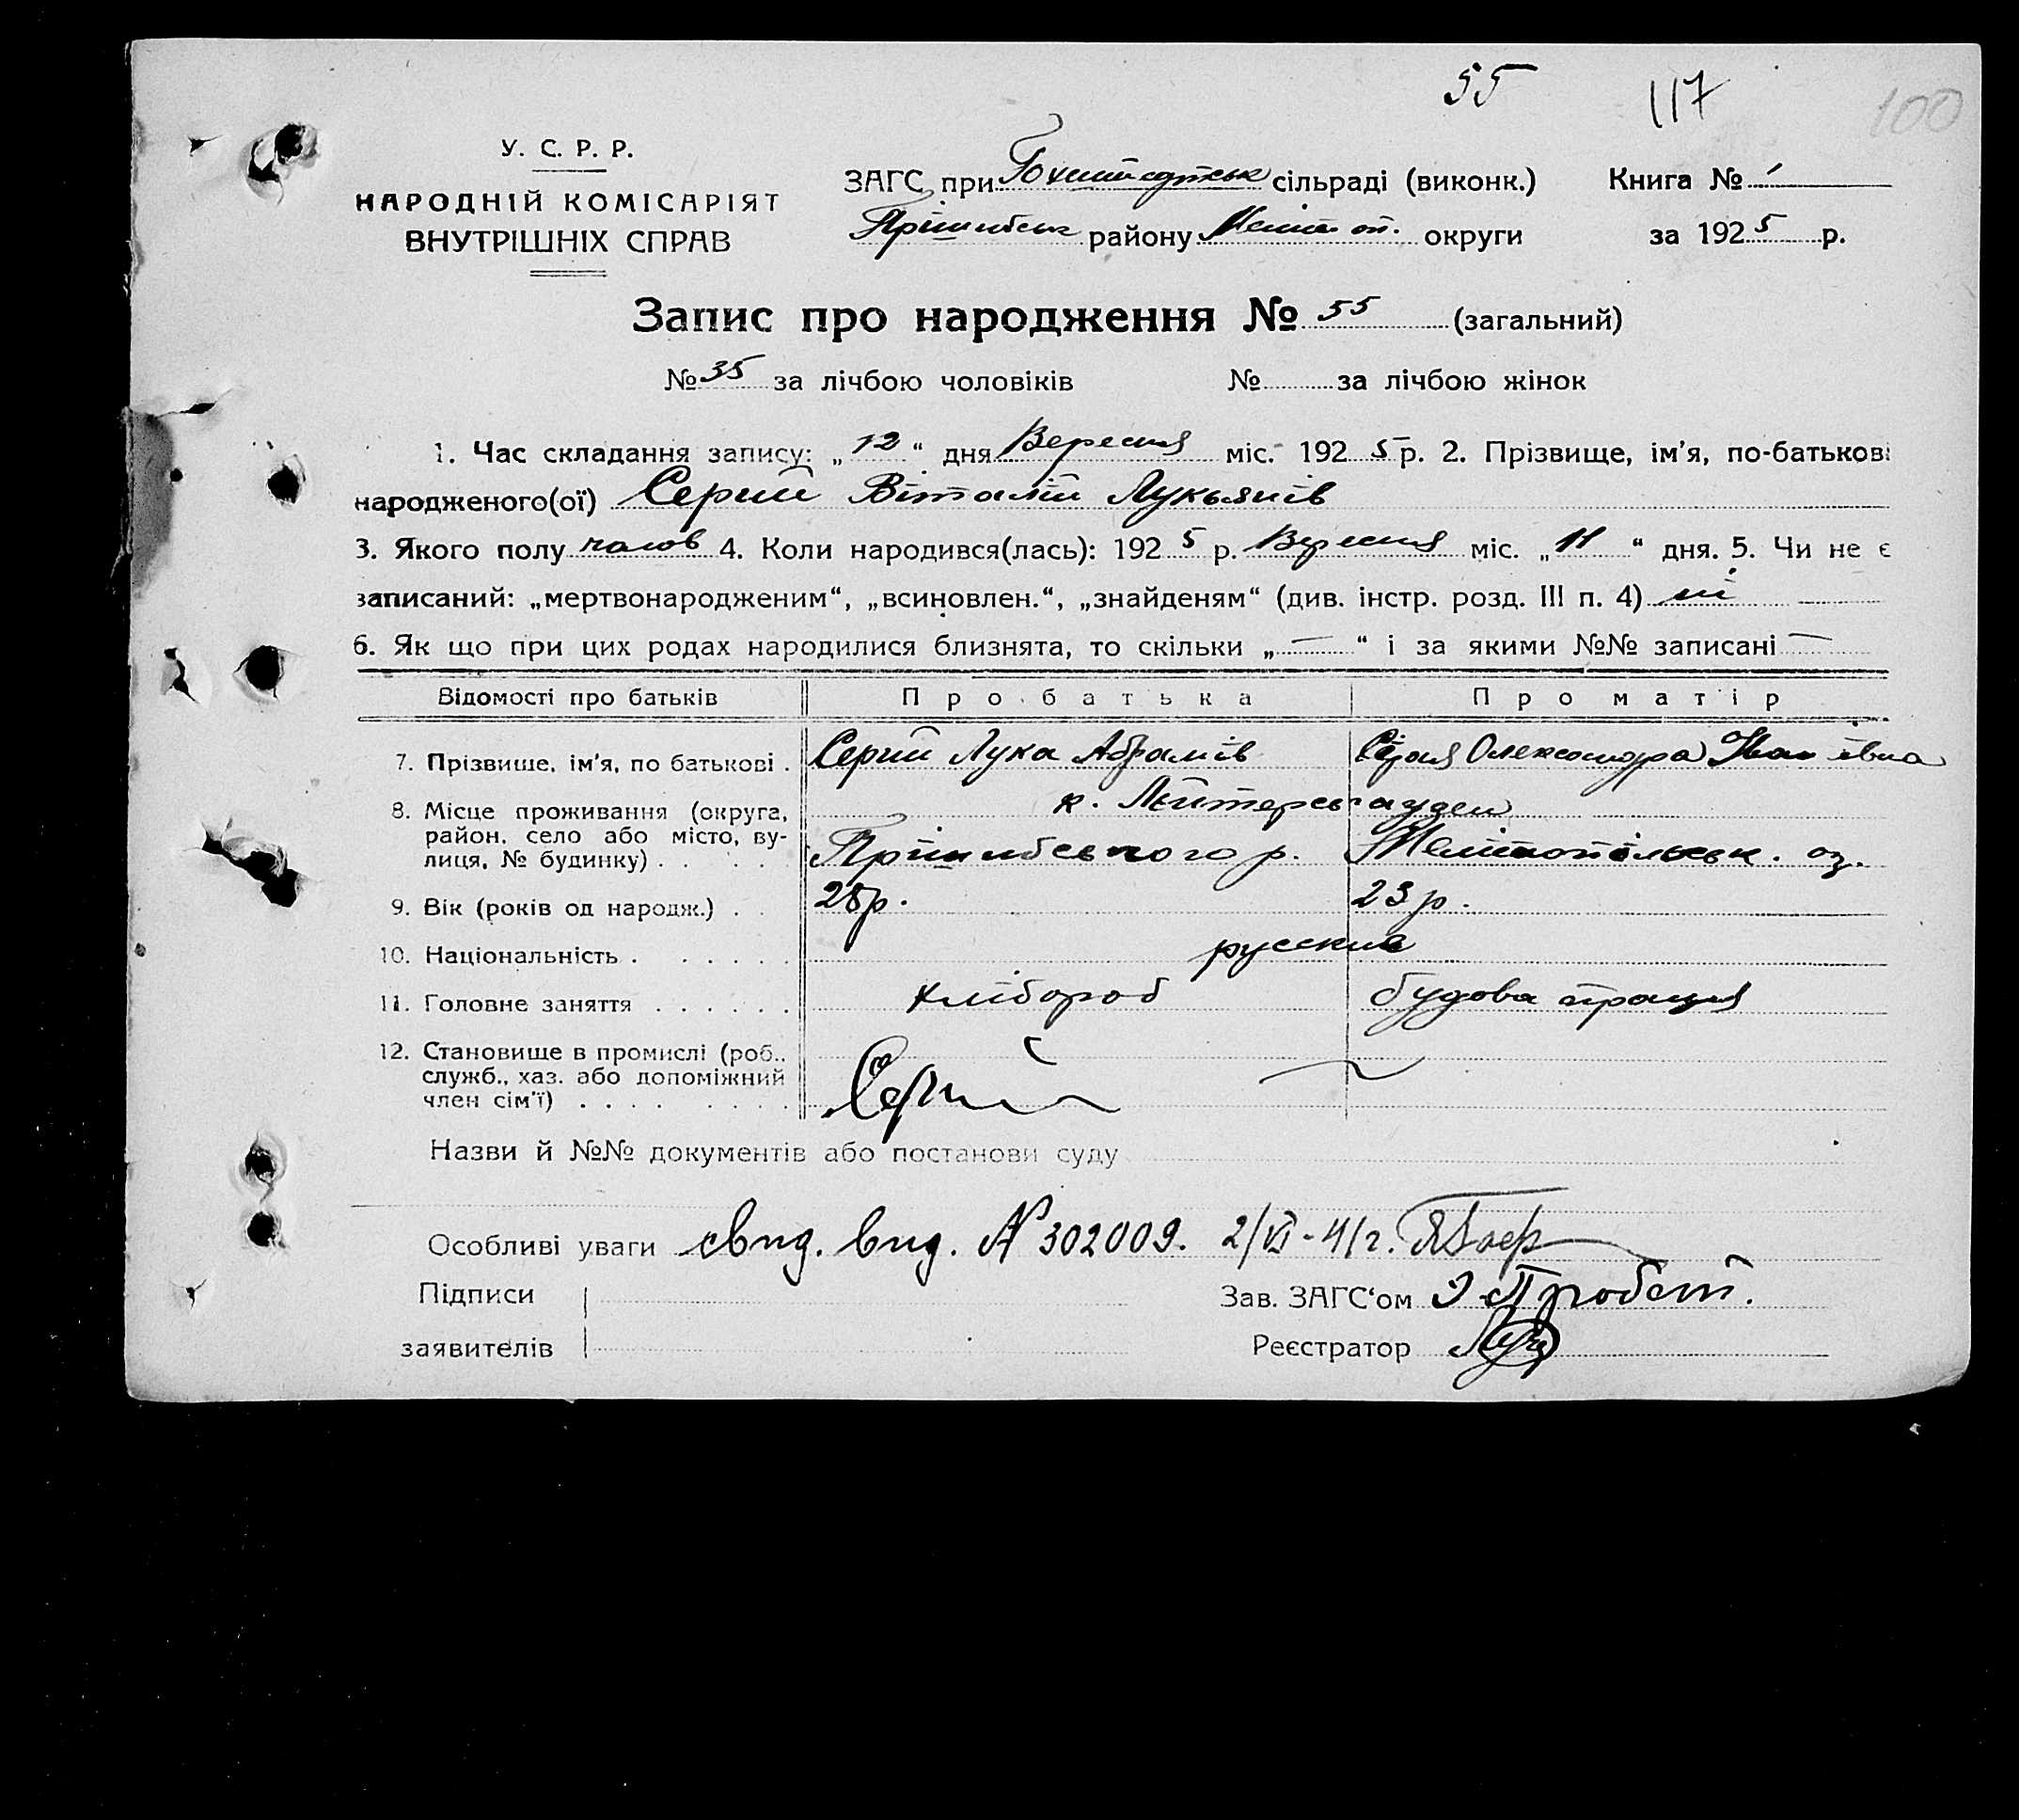 55 117 100
У. С. Р. Р.
НАРОДНІЙ КОМІСАРІЯТ
ВНУТРІШНІХ СПРАВ
ЗАГС при сільраді (виконк.) Книга № 1
Пришибськ району Меліт оп. округи за 1925 р.
Запис про народження № 55 (загальний)
№ 35 за лічбою чоловіків № за лічбою жінок
1. Час складання запису: „12“ дня Вересня міс. 1925 р. 2. Прізвище, ім'я, по-батькові
народженого(ої) Серий Віталій Лукьянів
3. Якого полу чолов 4. Коли народився(лась): 1925 р. Вересня міс. „11“ дня. 5. Чи не є
записаний: „мертвонародженим“, „всиновлен.“, „знайденям“ (див. інстр. розд. III п. 4) ні
6. Як що при цих родах народилися близнята, то скільки „—“ і за якими №№ записані —
Відомості про батьків Про батька Про матір
7. Прізвише, ім'я, по батькові . Серий Лука Абрамів Сірая Олександра Іванівна
8. Місце проживання (округа,
район, село або місто, ву-
лиця, № будинку) . . . . Пришибського р. Мелітопільськ. ок.
9. Вік (років од народж.) . . 28 р. 23 р.
10. Національність . . . . . . русские
11. Головне заняття . . . . . . хлібороб будова праця
12. Становище в промислі (роб.,
служб., хаз. або допоміжний
член сім'ї) . . . . . . . . Серий
Назви й №№ документів або постанови суду
Особливі уваги свид. вид. № 302009. 2/VI-41г.
Підписи Зав. ЗАГС‘ом
заявителів Реєстратор